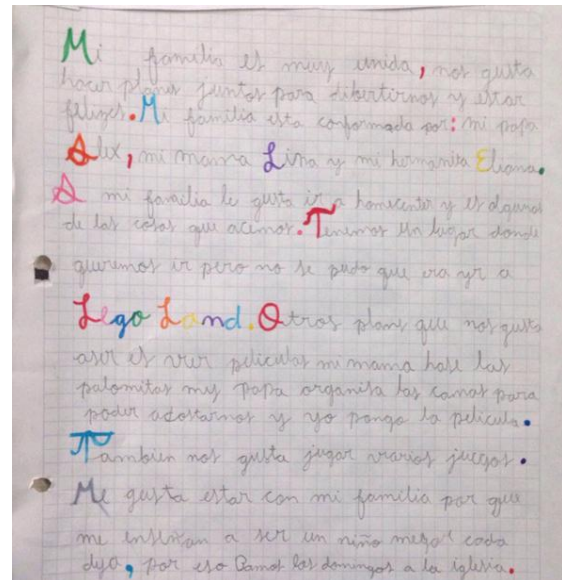 Mi familia es muy unida, nos gusta
hacer planes juntos para dibertirnos y estar
felizes. Mi familia esta conformada por: mi papa
Alex, mi mama Lina y mi hermanita Eliana.
A mi familia le gusta ir a homecenter y es algunas
de las cosas que acemos. Tenemos un lugar donde
queremos ir pero no se pudo que era yr a
Lego Land. Otros plans que nos gusta
aser es ver peliculas mi mama hase las
palomitas my papa organisa las camas para
poder acostarnos y yo pongo la pelicula.
Tambien nos gusta jugar varios juegos.
Me gusta estar con mi familia por que
me enseñan a ser un niño mejor cada
dya, por eso Bamos los domingos a la iglesia.